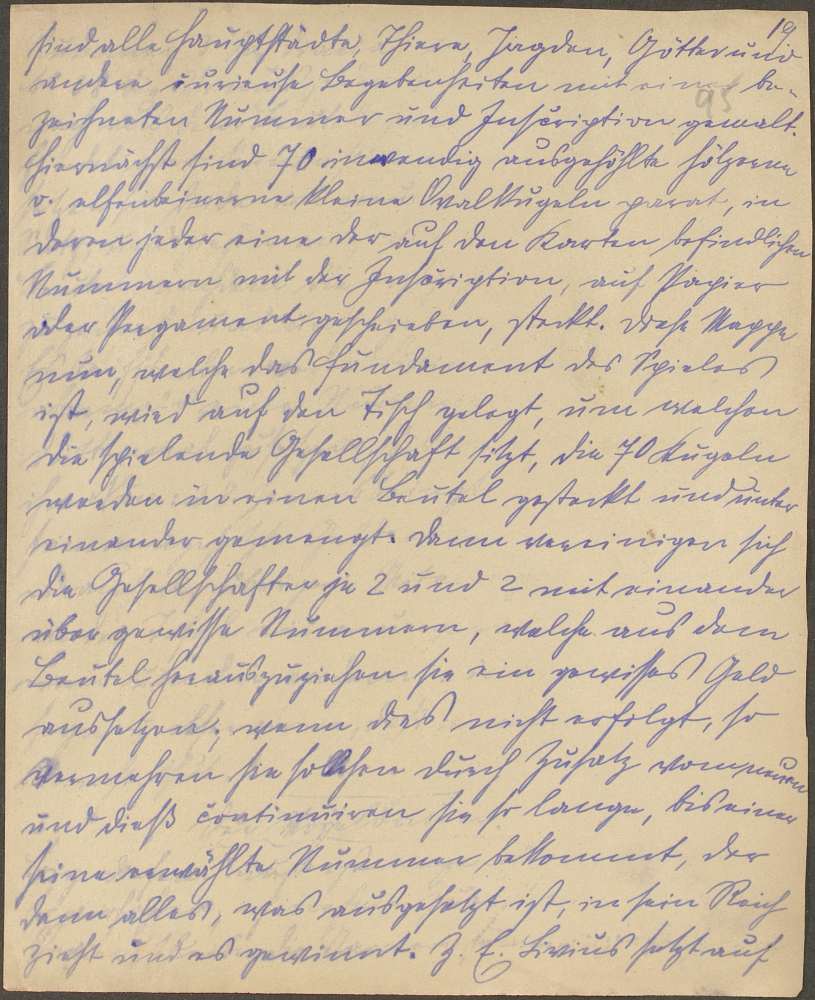 19
sind alle Hauptstädte, Thiere, Jagden, Götter und
andere curieuse Begebenheiten mit einer be-
95
zeichneten Nummer und Inscription gemalt.
Hiernächst sind 70 inwendig ausgehöhlte hölzerne
o. elfenbeinerne kleine Ovalkugeln parat, in
deren jeder eine der auf den Karten befindlichen
Nummern mit der Inscription, auf Papier
oder Pergament geschrieben, steckt. Diese Mappe
nun, welche das Fundament des Spieles
ist, wird auf den Tisch gelegt, um welchen
die spielende Gesellschaft sitzt, die 70 Kugeln
werden in einen Beutel gesteckt und unter
einander gemengt. Dann vereinigen sich
die Gesellschafter je 2 und 2 mit einander
über gewisse Nummern, welche aus dem
Beutel herauszuziehen sie ein gewisses Geld
aussetzen; wenn dies nicht erfolgt, so
vermehren sie solchen durch Zusatz vom neuen
und dieß continuiren sie so lange, bis einer
seine erwählte Nummer bekommt, der
dann alles, was ausgesetzt ist, in sein Reich
zieht und es gewinnt. Z. E. Livius setzt auf